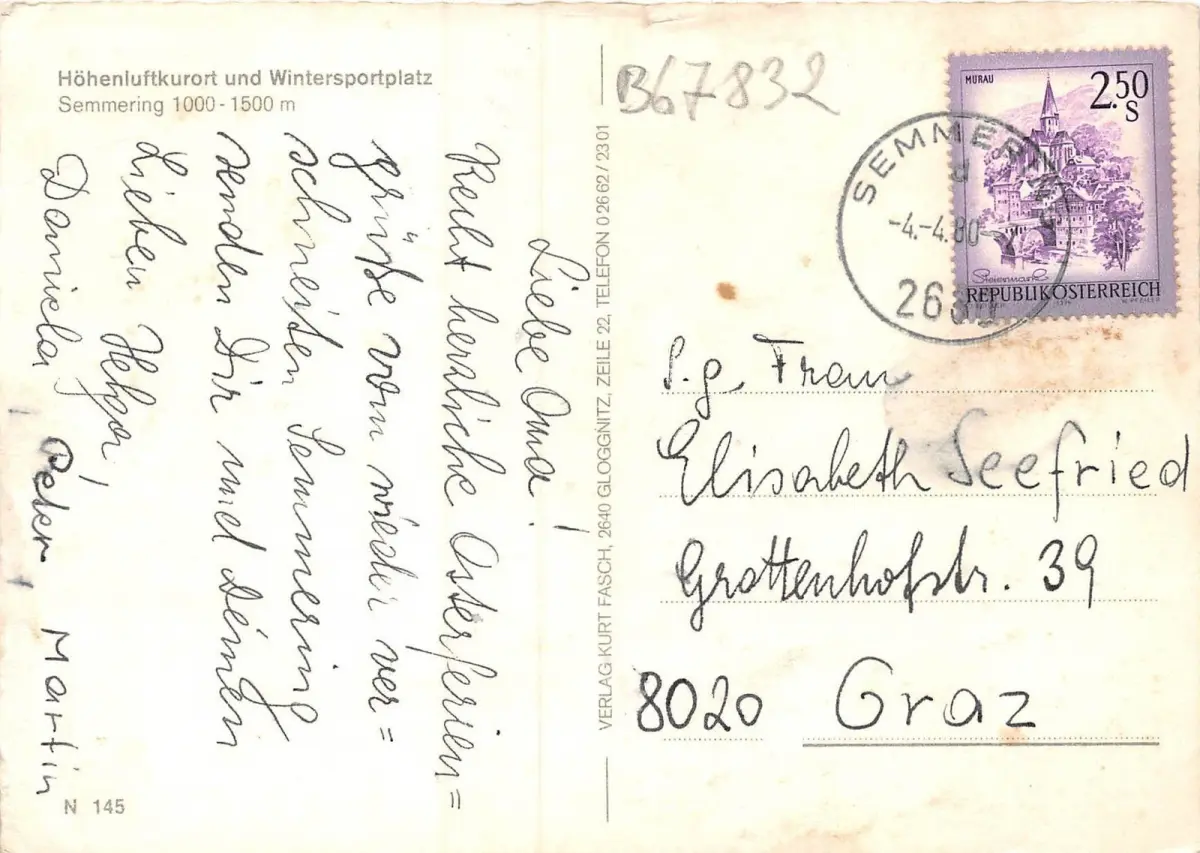 Höhenluftkurort und Wintersportplatz
Semmering 1000 - 1500 m
Liebe Oma!
Recht herzliche Osterferien=
grüße vom wieder ver=
schneiten Semmering
senden Dir und deinen
Lieben Helga,
Daniela, Peter, Martin
N 145
VERLAG KURT FASCH, 2640 GLOGGNITZ, ZEILE 22, TELEFON 0 26 62 / 23 01
B67832
MURAU
2.50
S
Steiermark
REPUBLIK ÖSTERREICH
SEMMERING
d
-4.-4.80-
2680
S.g. Frau
Elisabeth Seefried
Grottenhofstr. 39
8020 Graz